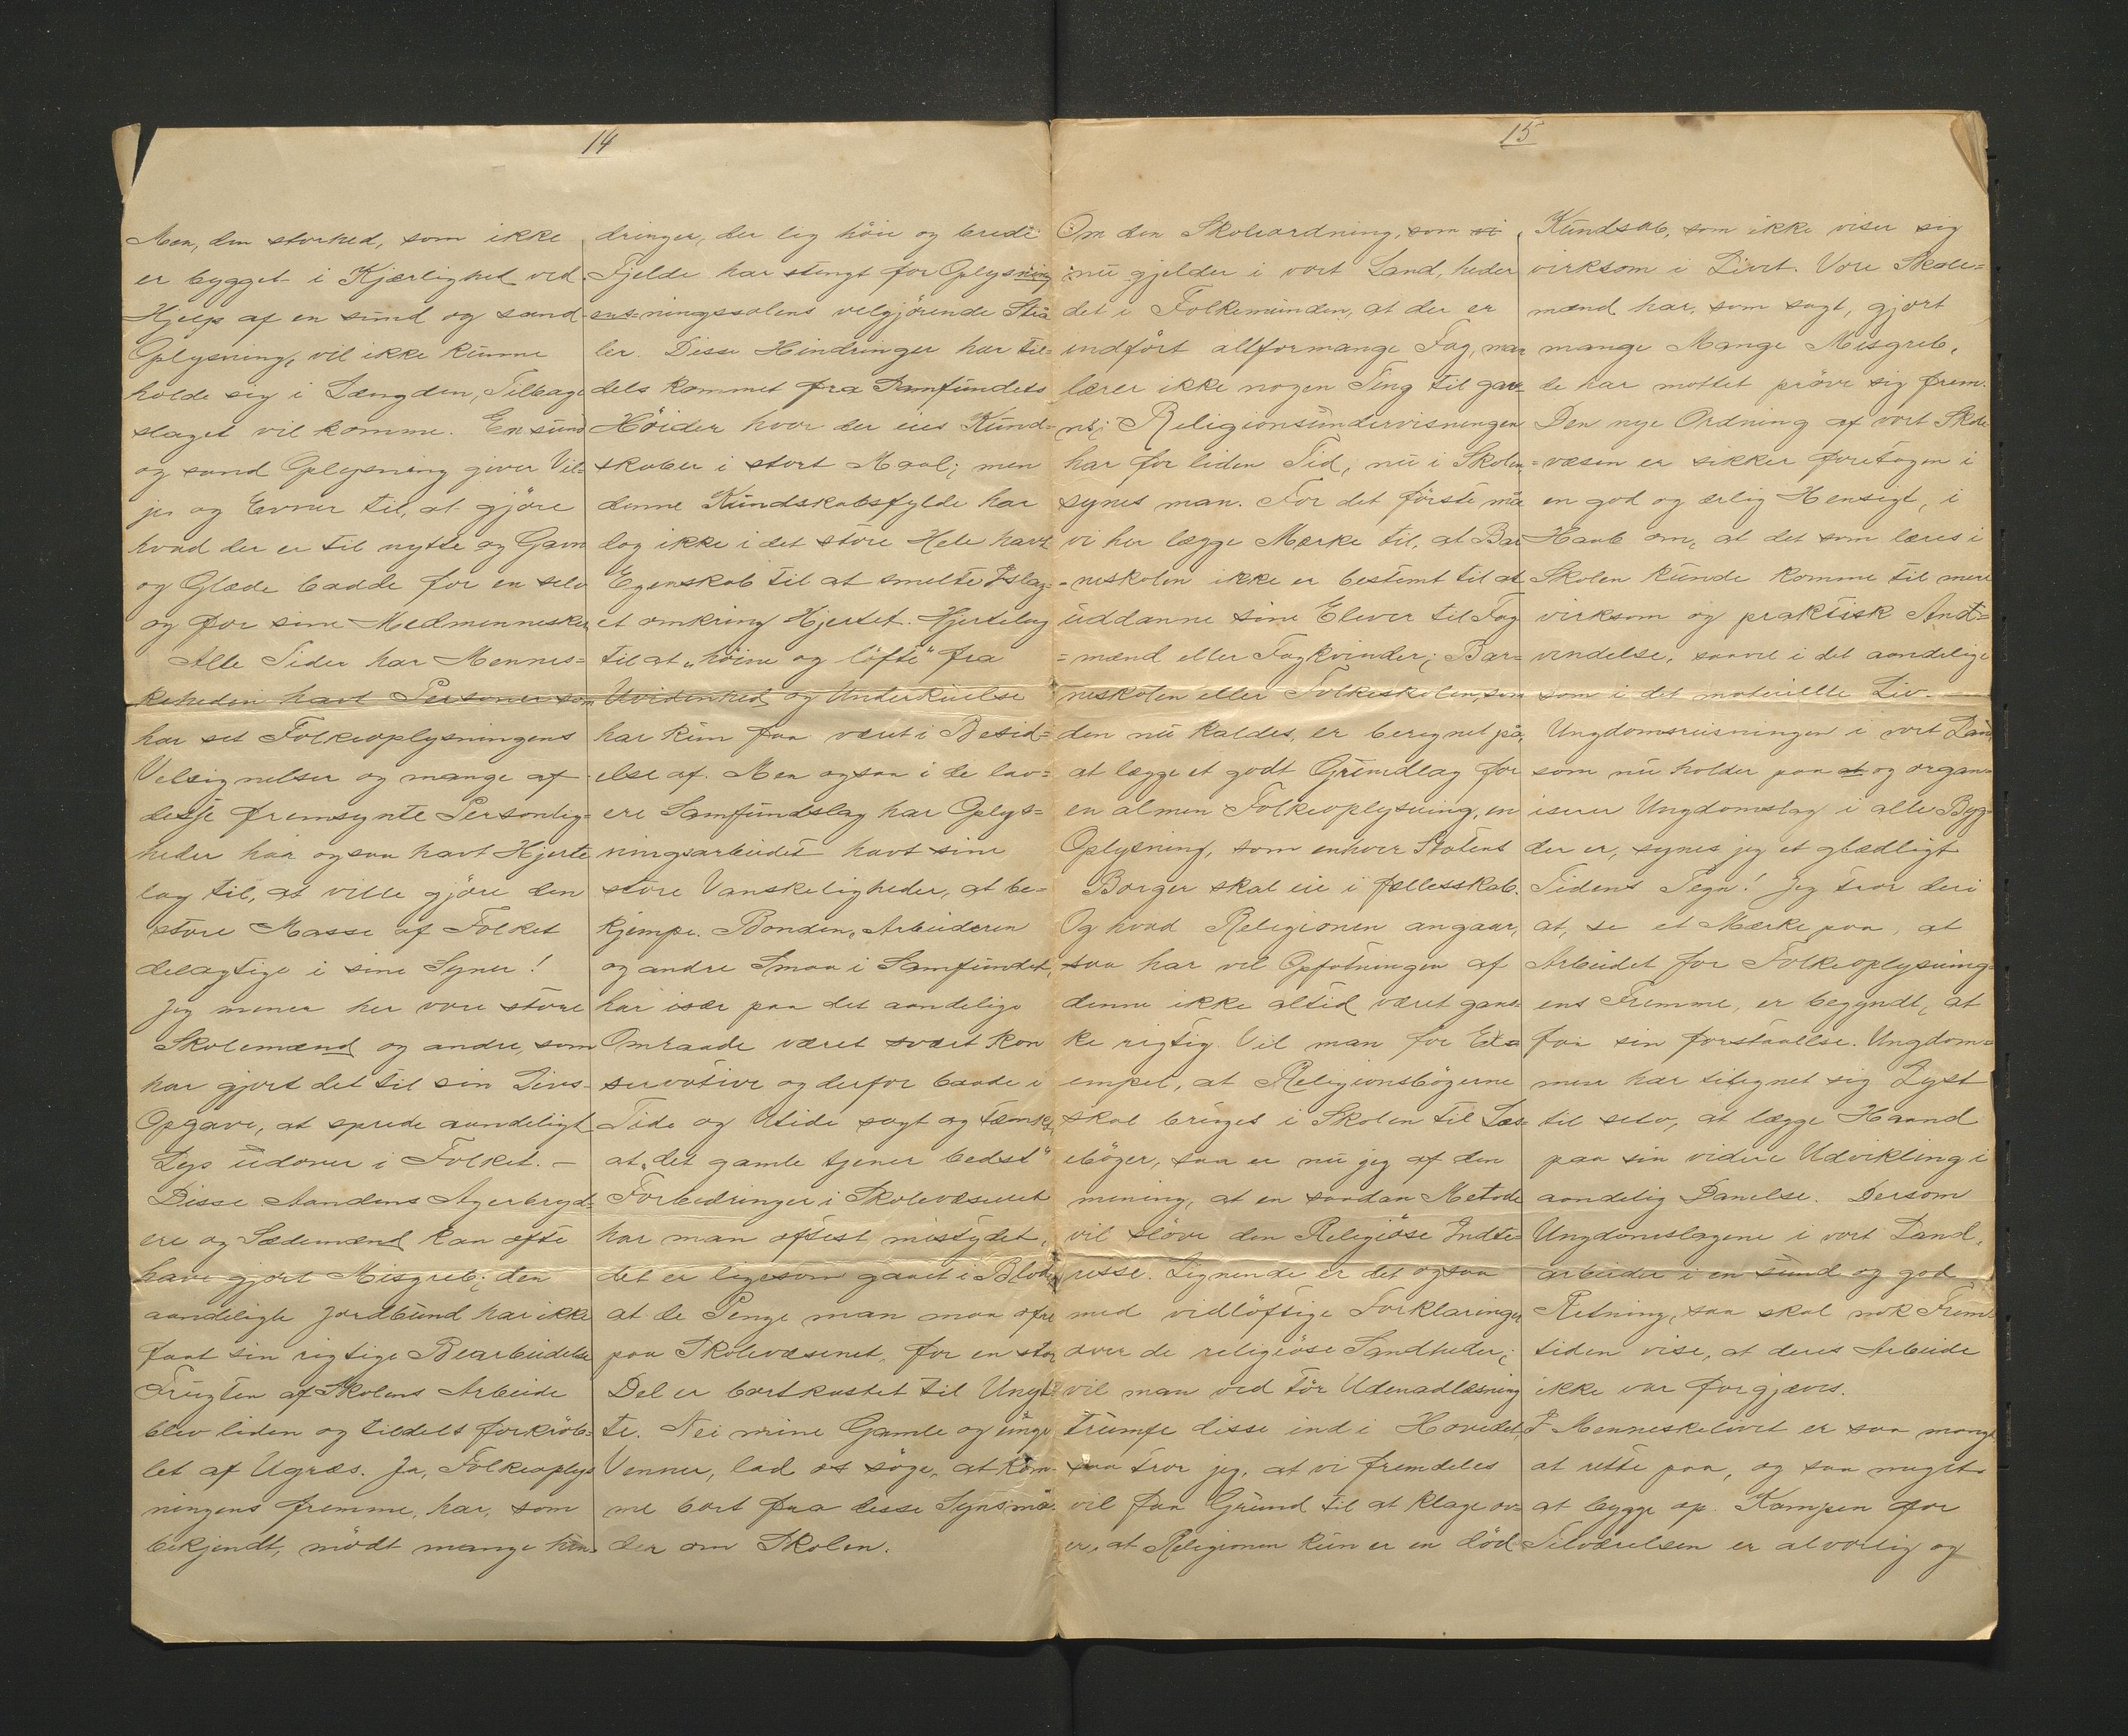 14
Men, den storhed, som ikke
er bygget i Kjærlighed ved
Hjelp af en sund og sand
Oplysning, vil ikke kunne
holde sig i Længden, Tilbage
slaget vil komme. En sund
og sand Oplysning giver Vil-
je og Evner til, at gjöre
hvad der er til nytte og Gavn
og Glæde baade for en selv
og for sine Medmennesker
Alle Tider har Mennes-
keheden havt Personer som
har set Folkeoplysningens
Velsignelser og mange af
desje fremsynte Personlig-
heder har ogsaa havt Hjerte
lag til, at ville gjöre den
store Masse af Folket
delagtige i sine Syner!
Jeg mener her vore store
Skolemænd og andre, som
har gjort det til sin Livs-
Opgave, at sprede aandeligt
Lys udover i Folket. —
Disse Aandens Agerbryd-
ere og Sædemænd kan ofte
have gjort Misgreb; den
aandeligte Jordbund har ikke
faat sin rigtige Bearbeidelse
Frugten af Skolens Arbeide
blev liden og tildels forkröb-
let af Ugræs. Ja, Folkeoplys
ningens fremme, har, som
bekjendt, mödt mange hin-
dringer, der lig höie og brede
Fjelde har stengt for Oplysning
sus-ningssolens velgjörende Stra
ler. Disse Hindringer har til-
dels kommet fra Samfundets
Höider hvor der eies Kund-
skaber i stort Maal; men
denne Kundskabsfylde har
dog ikke i det store Hele havt
Egenskab til at smelte Islag-
et omkring Hjertet. Hjertelag
til at „höine og löfte" fra
Uvidenhed og Underkuelse
har kun faa været i Besid-
else af. Men ogsaa i de lav-
ere Samfundslag har Oplys-
ningsarbeidet havt sine
store Vanskeligheder, at be-
kjempe. Bonden, Arbeideren
og andre Smaa i Samfundet,
har især paa det aandelige
Omraade været svært kon
servative og derfor baade i
Tide og Utide sagt og tænkt,
at „det gamle tjener bedst"
Forbedringer i Skolevæsenet
har man oftest mistydet,
det er ligesom gaaet i Blodet
at de Penge man maa ofre
paa Skolevæsenet, for en stor
Del er bortkastet til Unyt-
te. Nei mine Gamle og unge
Venner, lad os söge, at kom-
me bort fra disse Synsmaa-
der om Skolen.
15
Om den Skoleordning, som si
nu gjelder i vort Land, heder
det i Folkemunden, at der er
indfört altformange Fag, man
lærer ikke nogen Ting til gav-
ns; Religionsundervisningen
har for liden Tid, nu i Skolen
synes man. For det förste maa
vi her lægge Mærke til, at Bar
-neskolen ikke er bestemt til at
uddanne sine Elever til Fag
=mænd eller Fagkvinder; Bar=
neskolen eller Folkeskolen, som
den nu kaldes, er beregnet på,
at lægge et godt Grundlag for
en almen Folkeoplysning, en
Oplysning, som enhver Statens
Borger skal eie i fællesskab.
Og hvad Religionen angaar,
saa har vel Opfatningen af
denne ikke altid været gans
ke rigtig. Vil man for Eks
empel, at Religionsbögerne
skal bringes i Skolen til Læs-
ebögер, saa er nu jeg af den
mening, at en saadan Metode
vil slöve den Religiöse Indte-
resse. Lignende er det ogsaa
med vidlöftige Forklaringer
over de religiöse Sandheder;
vil man ved tör Udenadlæsning
trumfe disse ind i Hovedet,
saa tror jeg, at vi fremdeles
vil faa Grund til at klage ov-
er, at Religionen kun er en död
Kundskab, som ikke viser sig
virksom i Livet. Vore Skole=
mænd har, som sagt, gjort
mange Mange Misgreb,
de har mottet pröve sig frem.
Den nye Ordning af vort Skole
=væsen er sikker foretagen i
en god og ærlig Hensigt, i
Haab om, at det som læres i
Skolen kunde komme til mere
virksom og praktisk Anst=
vendelse, saavel i det aandelige
som i det materielle Liv.
Ungdomsreisningen i vort Land
som nu holder paa at og organ-
iserer Ungdomslag i alle Byg-
der er, synes jeg et glædligt
Tidens Tegn! Jeg tror deri
at, se et Mærke paa, at
Arbeidet for Folkeoplysning-
ens Fremme, er begyndt, at
faa sin forstaaelse. Ungdom=
men har tilegnet sig Lyst
til selv, at lægge Haand
paa sin videre Udvikling i
aandelig Danelse. Dersom
Ungdomslagene i vort Land,
arbeider i en sund og god
Retning, saa skal nok Frem-
tiden vise, at deres Arbeide
ikke var forgjæves.
I Menneskelivet er saa mangt
at rette paa, og saa meget
at bygge op. Kampen for
Tilværelsen er alvorlig og